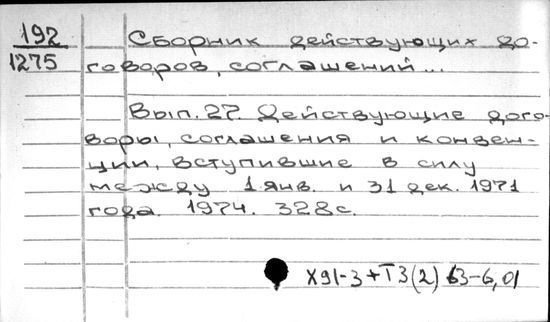 192
1275
Сборник действующих до-
говоров, соглашений...
Вып. 27. Действующие дого-
воры, соглашения и конвен-
ции, вступившие в силу
между 1 янв. и 31 дек. 1971
года. 1974. 328с.
Х91-3+Т3(2)63-6,01